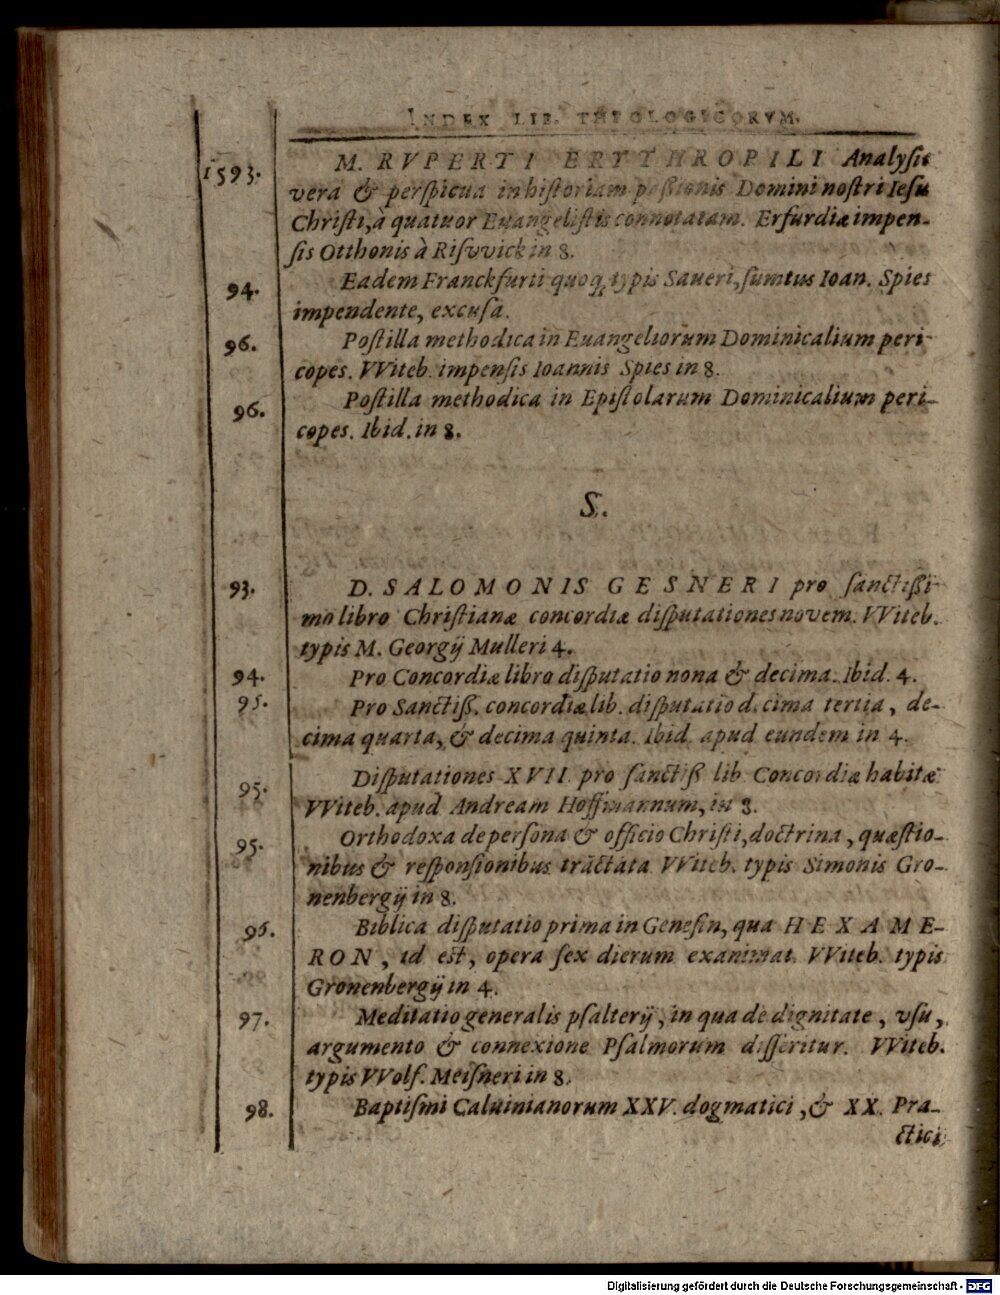 INDEX LIB. THEOLOGICORVM.
1593. M. RVPERTI ERYTHROPILI Analysis
vera & perspicua in historiam passionis Domini nostri Iesu
Christi, à quatuor Euangelistis connotatam. Erfurdiæ impen-
sis Otthonis à Risvvick in 8.
94. Eadem Franckfurti quoq; typis Saueri, sumtus Ioan. Spies
impendente, excusa.
96. Postilla methodica in Euangeliorum Dominicalium peri-
copes. VViteb. impensis Ioannis Spies in 8.
96. Postilla methodica in Epistolarum Dominicalium peri-
copes. Ibid. in 8.
S.
93. D. SALOMONIS GESNERI pro sanctißi-
mo libro Christianæ concordiæ disputationes novem. VViteb.
typis M. Georgij Mulleri 4.
94. Pro Concordiæ libro disputatio nona & decima. Ibid. 4.
95. Pro Sanctiß. concordiæ lib. disputatio decima tertia, de-
cima quarta, & decima quinta. Ibid. apud eundem in 4.
95. Disputationes XVII. pro sanctiß. lib. Concordiæ habitæ
VViteb. apud Andream Hoffmannum, in 8.
95. Orthodoxa de persona & officio Christi, doctrina, quæstio-
nibus & responsionibus tractata VViteb. typis Simonis Gro-
nenbergij in 8.
96. Biblica disputatio prima in Genesin, qua HEXAME-
RON, id est, opera sex dierum examinat. VViteb. typis
Gronenbergij in 4.
97. Meditatio generalis psalterij, in qua de dignitate, vsu,
argumento & connexione Psalmorum disseritur. VViteb.
typis VVolf. Meisneri in 8.
98. Baptismi Caluinianorum XXV. dogmatici, & XX. Pra-
ctici
Digitalisierung gefördert durch die Deutsche Forschungsgemeinschaft - DFG